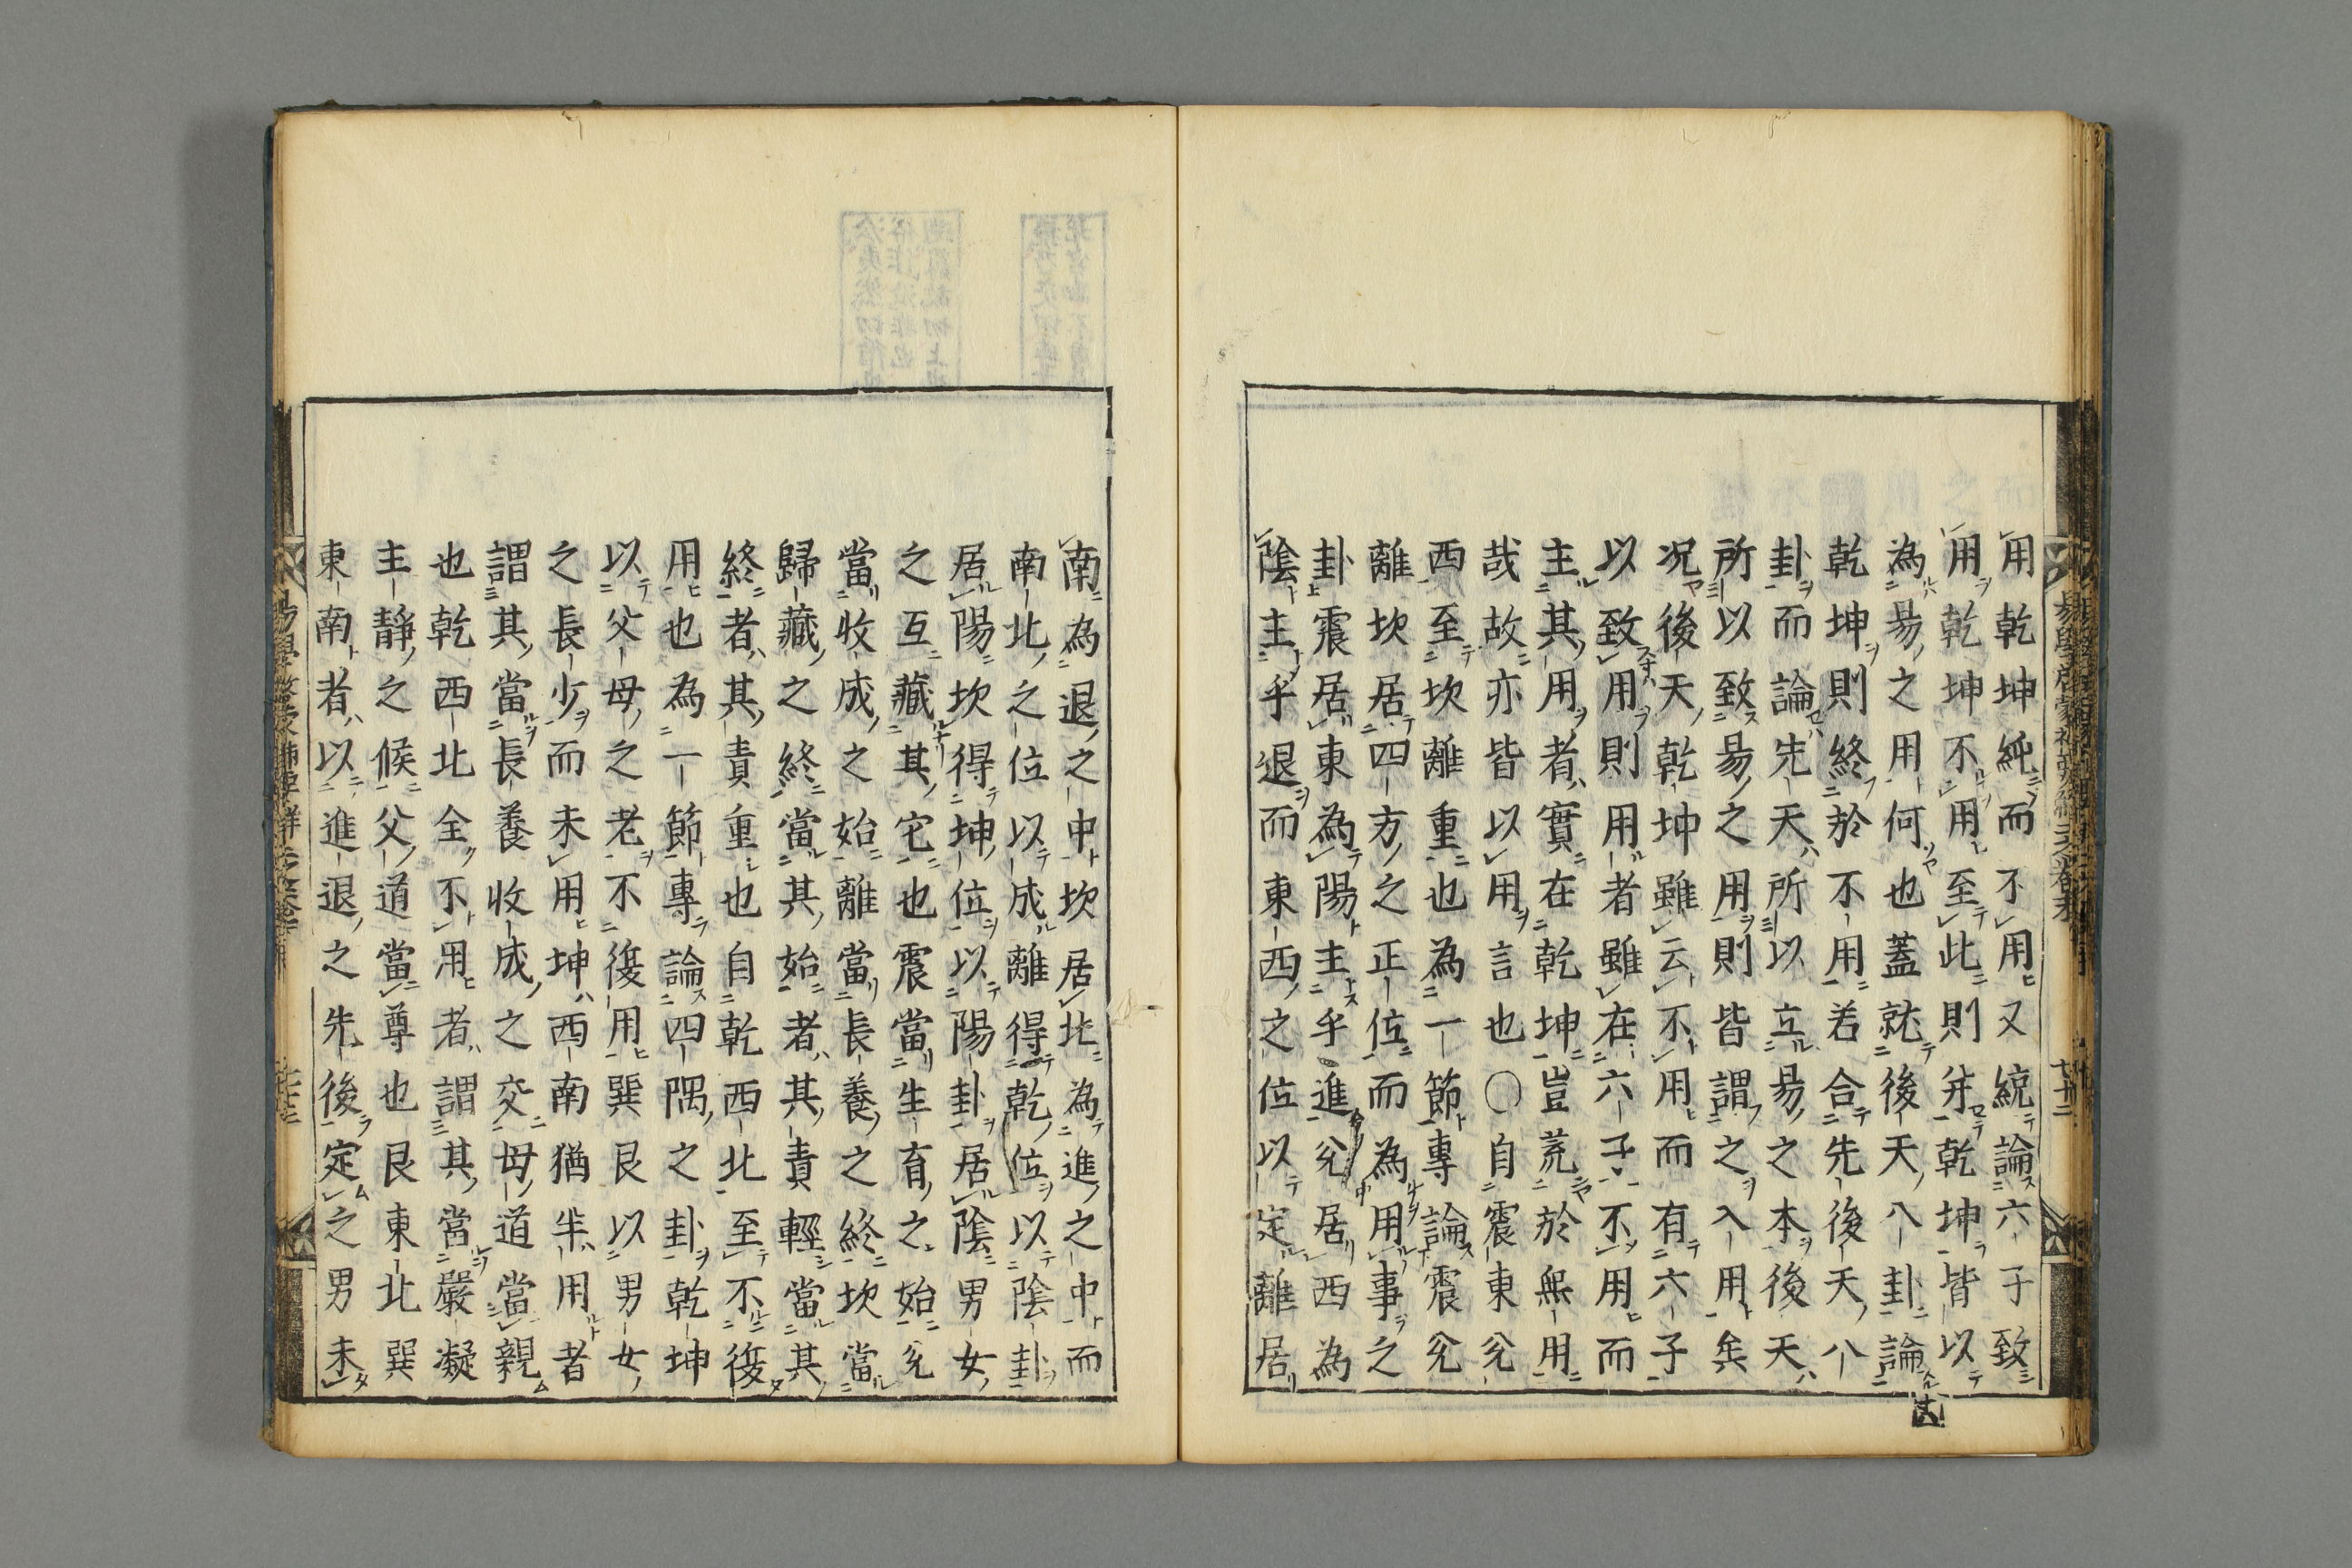 用乾坤純而不用又統論六子致
用乾坤不用至此則并乾坤皆以
為易之用何也蓋就後天八卦論
乾坤則終於不用若合先後天八
卦而論先天所以立易之本後天
所以致易之用則皆謂之入用矣
况後天乾坤雖云不用而有六子
以致用則用者雖在六子不用而
主其用者實在乾坤豈荒於無用
哉故亦皆以用言也〇自震東兊
西至坎離重也為一節專論震兊
離坎居四方之正位而為用事之
卦震居東為陽主乎進兊居西為
陰主乎退而東西之位以定離居
南為退之中坎居北為進之中而
南北之位以成離得乾位以陰卦
居陽坎得坤位以陽卦居陰男女
之互藏其宅也震當生育之始兊
當收成之始離當長養之終坎當
歸藏之終當其始者其責輕當其
終者其責重也自乾西北至不復
用也為一節專論四隅之卦乾坤
以父母之老不復用巽艮以男女
之長少而未用坤西南猶半用者
謂其當長養收成之交母道當親
也乾西北全不用者謂其當嚴凝
主靜之候父道當尊也艮東北巽
東南者以進退之先後定之男未